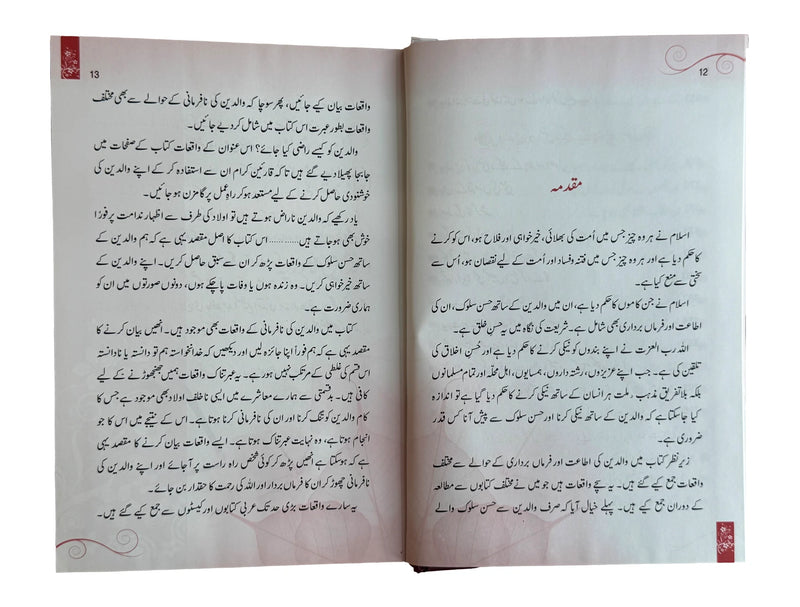 12
مقدمہ
اسلام نے ہر وہ چیز جس میں اُمت کی بھلائی، خیرخواہی اور فلاح ہو، اس کو کرنے
کا حکم دیا ہے اور ہر وہ چیز جس میں فتنہ و فساد اور اُمت کے لیے نقصان ہو، اُس سے
سختی سے منع کیا ہے۔
اسلام نے جن کاموں کا حکم دیا ہے، ان میں والدین کے ساتھ حسن سلوک، ان کی
اطاعت اور فرماں برداری بھی شامل ہے۔ شریعت کی نگاہ میں یہ حسن خلق ہے۔
اللہ رب العزت نے اپنے بندوں کو نیکی کرنے کا حکم دیا ہے اور حُسنِ اخلاق کی
تلقین کی ہے۔ جب اپنے عزیزوں، رشتہ داروں، ہمسایوں، اہل محلہ اور تمام مسلمانوں
بلکہ بلا تفریق مذہب و ملت ہر انسان کے ساتھ نیکی کرنے کا حکم دیا گیا ہے تو اندازہ
کیا جا سکتا ہے کہ والدین کے ساتھ نیکی کرنا اور حسن سلوک سے پیش آنا کس قدر
ضروری ہے۔
زیر نظر کتاب میں والدین کی اطاعت اور فرماں برداری کے حوالے سے مختلف
واقعات جمع کیے گئے ہیں۔ یہ سچے واقعات ہیں جو میں نے مختلف کتابوں سے مطالعہ
کے دوران جمع کیے ہیں۔ پہلے خیال آیا کہ صرف والدین سے حسن سلوک والے
13
واقعات بیان کیے جائیں، پھر سوچا کہ والدین کی نافرمانی کے حوالے سے بھی مختلف
واقعات بطور عبرت اس کتاب میں شامل کر دیے جائیں۔
والدین کو کیسے راضی کیا جائے؟ اس عنوان کے واقعات کتاب کے صفحات میں
جابجا پھیلا دیے گئے ہیں تاکہ قارئین کرام ان سے استفادہ کر کے اپنے والدین کی
خوشنودی حاصل کرنے کے لیے مستعد ہو کر راہِ عمل پر گامزن ہو جائیں۔
یاد رکھیے کہ والدین ناراض ہوتے ہیں تو اولاد کی طرف سے اظہار ندامت پر فورًا
خوش بھی ہو جاتے ہیں............ اس کتاب کا اصل مقصد یہی ہے کہ ہم والدین کے
ساتھ حسن سلوک کے واقعات پڑھ کر ان سے سبق حاصل کریں۔ اپنے والدین کے
ساتھ خیرخواہی کریں۔ وہ زندہ ہوں یا وفات پا چکے ہوں، دونوں صورتوں میں ان کو
ہماری ضرورت ہے۔
کتاب میں والدین کی نافرمانی کے واقعات بھی موجود ہیں۔ انھیں بیان کرنے کا
مقصد یہی ہے کہ ہم فوراً اپنا جائزہ لیں اور دیکھیں کہ خدانخواستہ ہم تو دانستہ یا نادانستہ
اس قسم کی غلطی کے مرتکب نہیں ہو رہے۔ یہ عبرتناک واقعات ہمیں جھنجھوڑنے کے لیے
کافی ہیں۔ بدقسمتی سے ہمارے معاشرے میں ایسی ناخلف اولاد بھی موجود ہے جس کا
کام والدین کو تنگ کرنا اور ان کی نافرمانی کرنا ہوتا ہے۔ اس کے نتیجے میں اس کا جو
انجام ہوتا ہے، وہ نہایت عبرتناک ہوتا ہے۔ ایسے واقعات بیان کرنے کا مقصد یہی
ہے کہ ہو سکتا ہے انھیں پڑھ کر کوئی شخص راہِ راست پر آ جائے اور اپنے والدین کی
نافرمانی چھوڑ کر ان کا فرماں بردار اور اللہ کی رحمت کا حقدار بن جائے۔
یہ سارے واقعات بڑی حد تک عربی کتابوں اور کیسٹوں سے جمع کیے گئے ہیں۔